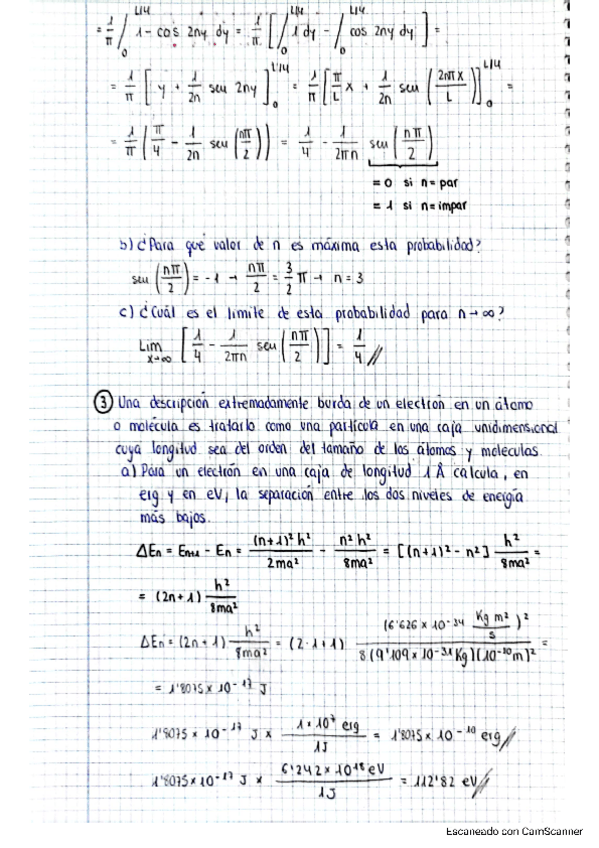 = 1/π ∫₀^{L/4} 1 - cos 2ny dy = 1/π [ ∫₀^{L/4} 1 dy - ∫₀^{L/4} cos 2ny dy ] =
= 1/π [ y + 1/2n seu 2ny ]₀^{L/4} = 1/π [ π/L x + 1/2n seu (2nπx/L) ]₀^{L/4} =
= 1/π ( π/4 - 1/2n seu (nπ/2) ) = 1/4 - 1/2πn seu (nπ/2)
= 0 si n = par
= 1 si n = impar
b) ¿Para qué valor de n es máxima esta probabilidad?
seu (nπ/2) = -1 → nπ/2 = 3/2 π → n = 3
c) ¿Cuál es el límite de esta probabilidad para n → ∞?
Lim x→∞ [ 1/4 - 1/2πn seu (nπ/2) ] = 1/4 //
③ Una descripción extremadamente burda de un electrón en un átomo
o molécula es tratarlo como una partícula en una caja unidimensional
cuya longitud sea del orden del tamaño de los átomos y moleculas.
a) Para un electrón en una caja de longitud 1 Å calcula, en
erg y en eV, la separación entre los dos niveles de energía
más bajos.
ΔEn = En+1 - En = (n+1)² h² / 2ma² - n² h² / 8ma² = [(n+1)² - n²] h² / 8ma² =
= (2n+1) h² / 8ma²
ΔEn = (2n+1) h² / 8ma² = (2·1+1) (6'626 × 10⁻³⁴ Kg m²/s)² / 8 (9'109 × 10⁻³¹ Kg)(10⁻¹⁰ m)² =
= 1'8075 × 10⁻¹⁷ J
1'8075 × 10⁻¹⁷ J × 1 × 10⁷ erg / 1J = 1'8075 × 10⁻¹⁰ erg //
1'8075 × 10⁻¹⁷ J × 6'242 × 10¹⁸ eV / 1J = 112'82 eV //
Escaneado con CamScanner